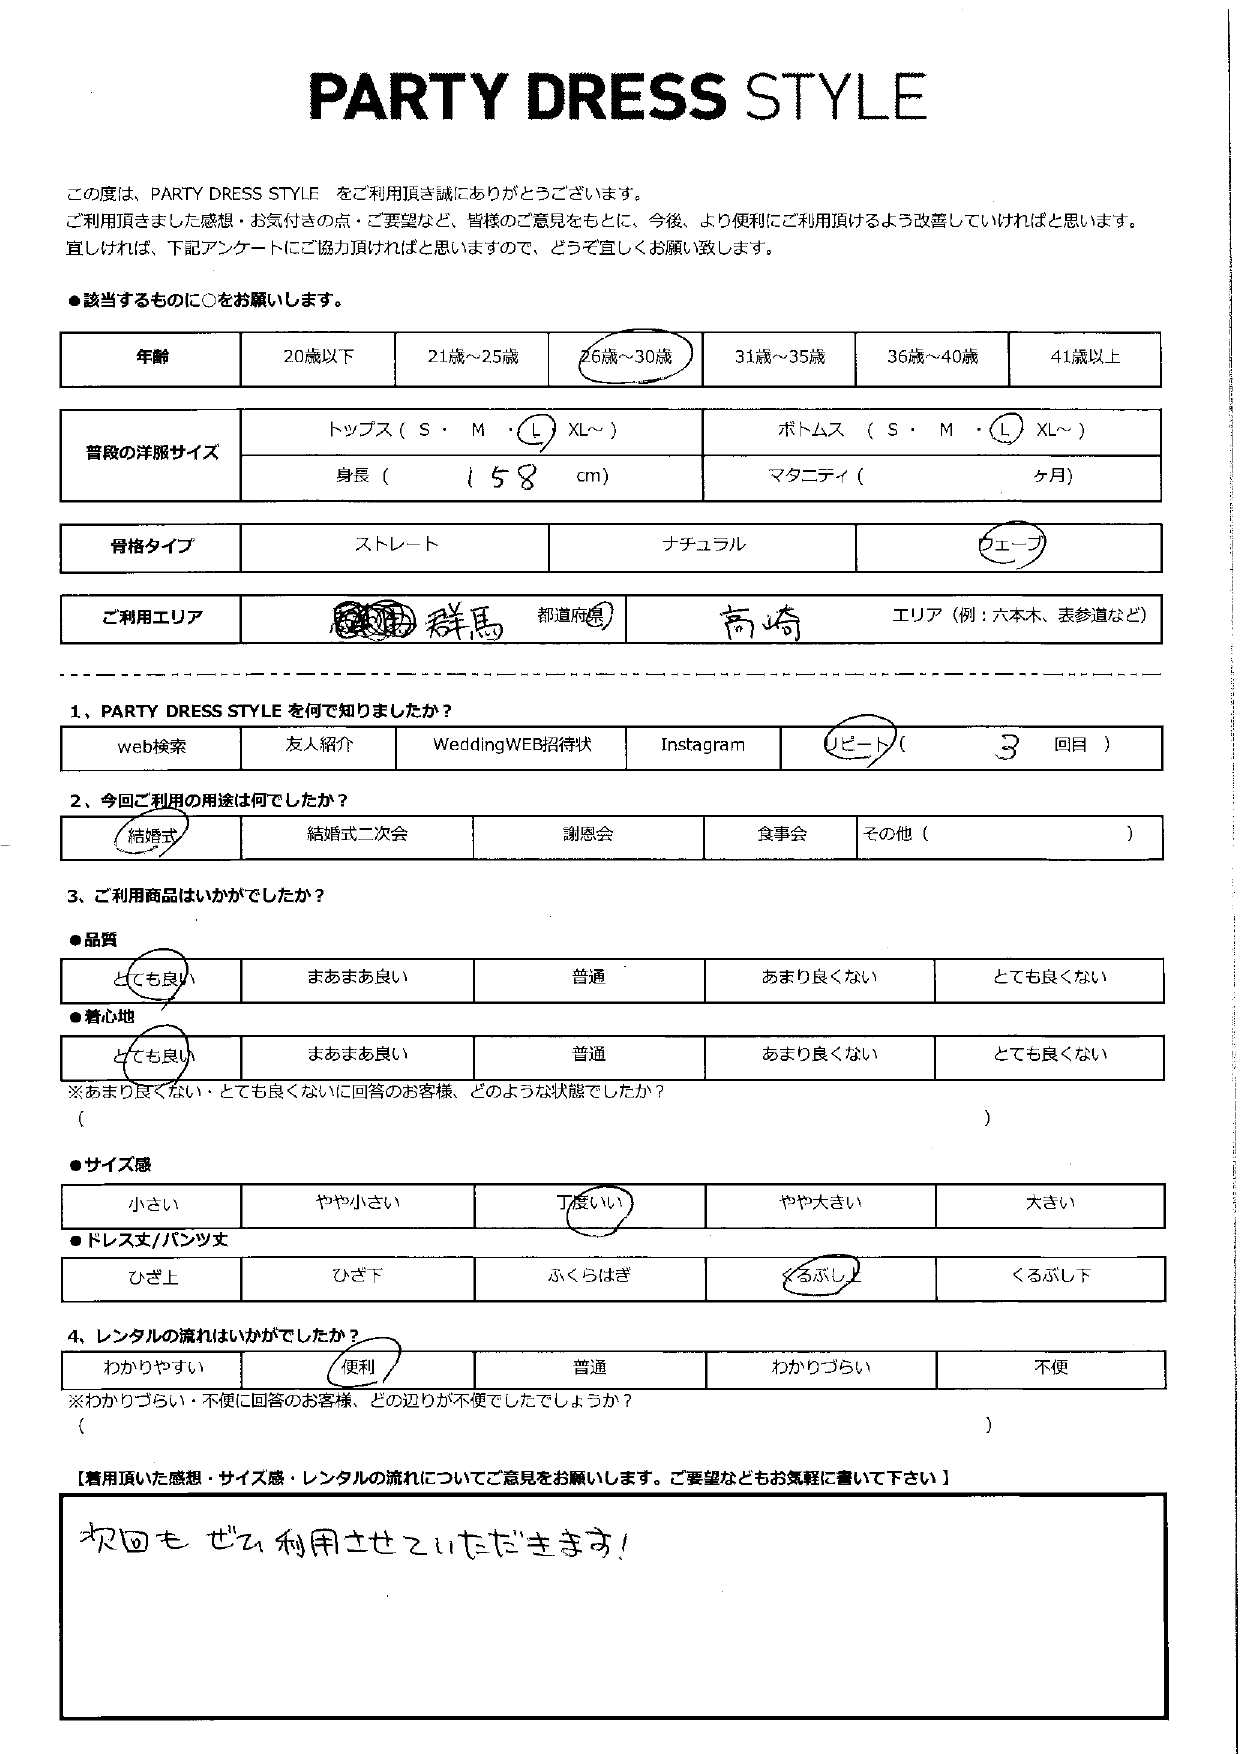 PARTY DRESS STYLE
この度は、PARTY DRESS STYLE をご利用頂き誠にありがとうございます。
ご利用頂きました感想・お気付きの点・ご要望など、皆様のご意見をもとに、今後、より便利にご利用頂けるよう改善していければと思います。
宜しければ、下記アンケートにご協力頂ければと思いますので、どうぞ宜しくお願い致します。
●該当するものに○をお願いします。
年齢 20歳以下 21歳～25歳 26歳～30歳 31歳～35歳 36歳～40歳 41歳以上
普段の洋服サイズ トップス ( S ・ M ・ L XL～ ) ボトムス ( S ・ M ・ L XL～ )
身長 ( 158 cm) マタニティ ( ヶ月)
骨格タイプ ストレート ナチュラル ウェーブ
ご利用エリア 群馬 都道府県 高崎 エリア（例：六本木、表参道など）
1、PARTY DRESS STYLE を何で知りましたか？
web検索 友人紹介 WeddingWEB招待状 Instagram リピート ( 3 回目 )
2、今回ご利用の用途は何でしたか？
結婚式 結婚式二次会 謝恩会 食事会 その他 ( )
3、ご利用商品はいかがでしたか？
●品質
とても良い まあまあ良い 普通 あまり良くない とても良くない
●着心地
とても良い まあまあ良い 普通 あまり良くない とても良くない
※あまり良くない・とても良くないに回答のお客様、どのような状態でしたか？
( )
●サイズ感
小さい やや小さい 丁度いい やや大きい 大きい
●ドレス丈/パンツ丈
ひざ上 ひざ下 ふくらはぎ くるぶし上 くるぶし下
4、レンタルの流れはいかがでしたか？
わかりやすい 便利 普通 わかりづらい 不便
※わかりづらい・不便に回答のお客様、どの辺りが不便でしたでしょうか？
( )
【着用頂いた感想・サイズ感・レンタルの流れについてご意見をお願いします。ご要望などもお気軽に書いて下さい】
次回も ぜひ 利用させていただきます!